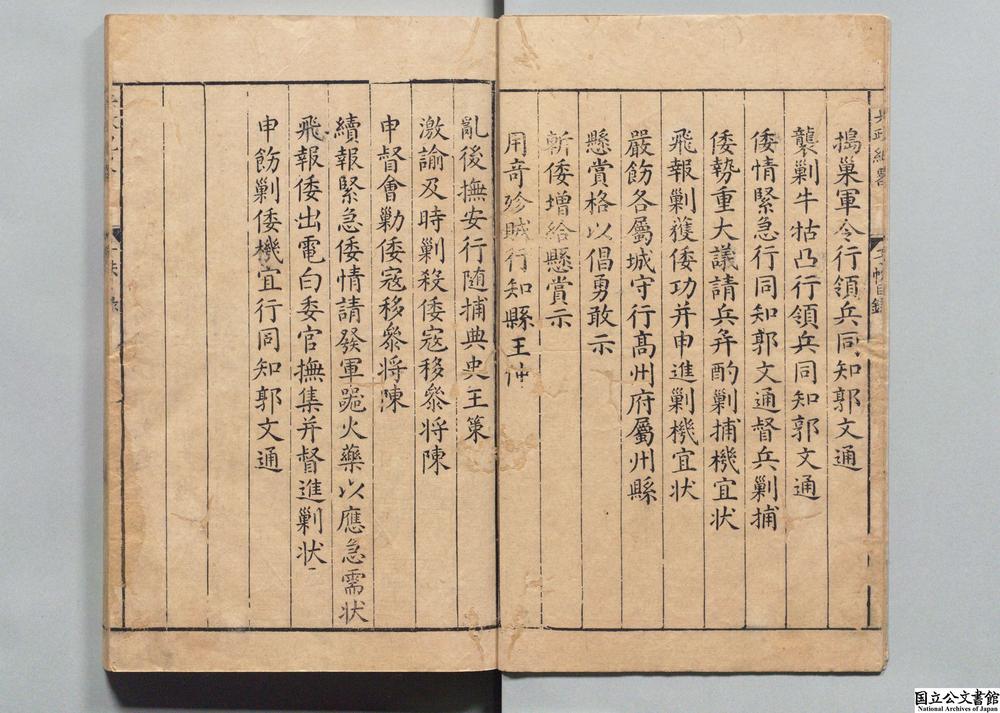 搗巢軍令行領兵同知郭文通
襲剿牛牯凸行領兵同知郭文通
倭情緊急行同知郭文通督兵剿捕
倭勢重大議請兵并酌剿捕機宜状
飛報剿獲倭功并申進剿機宜状
嚴飭各屬城守行髙州府屬州縣
懸賞格以倡勇敢示
斬倭增給懸賞示
用竒殄賊行知縣王
亂後撫安行随捕典史王策
激諭及時剿殺倭寇移叅将陳
申督會勦倭寇移叅将陳
續報緊急倭情請發軍噐火藥以應急需状
飛報倭出電白委官撫集并督進剿状
申飭剿倭機宜行同知郭文通
国立公文書館
National Archives of Japan